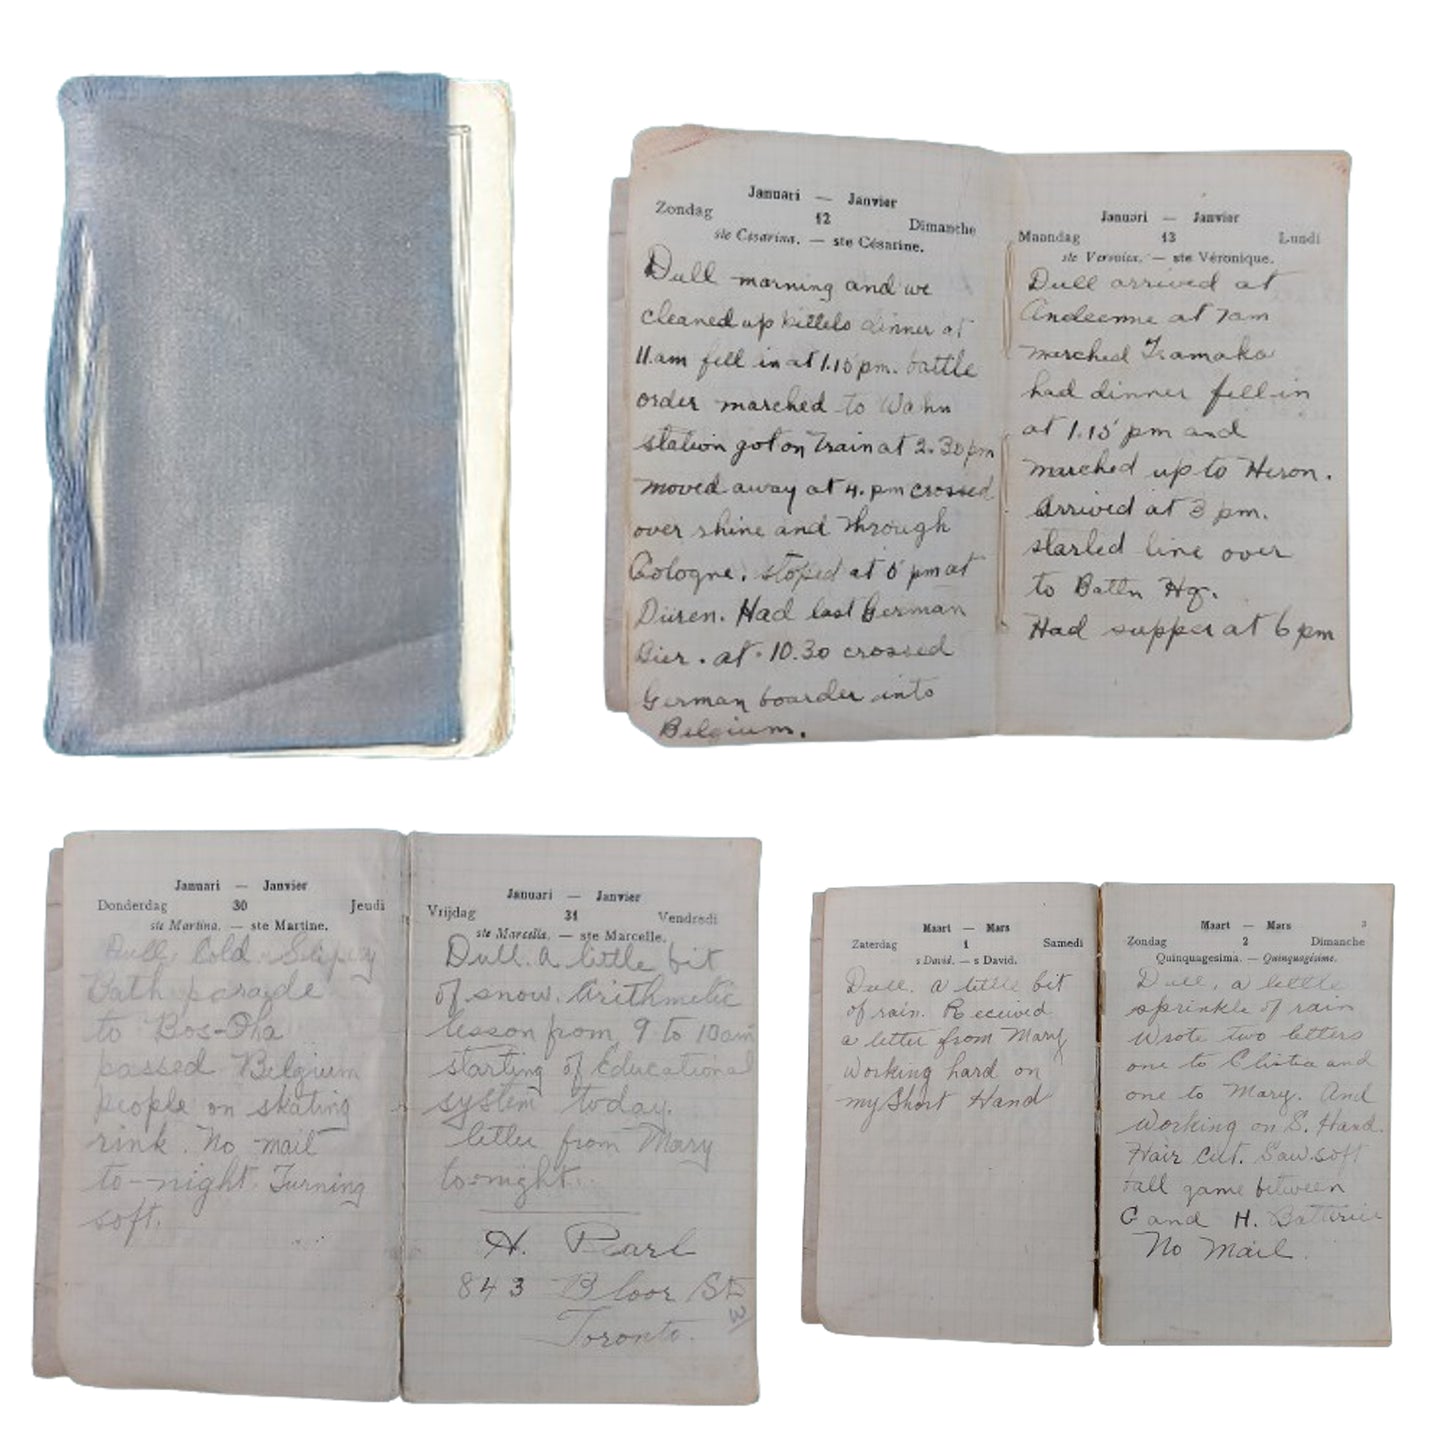 Januari — Janvier
Zondag 12 Dimanche
ste Césarina. — ste Césarine.
Dull morning and we
cleaned up billets dinner at
11.am fell in at 1.15 pm. battle
order marched to Wahn
station got on train at 2.30 pm
moved away at 4. pm crossed
over rhine and through
Cologne. stoped at 5 pm at
Düren. Had last German
Bier. at 10.30 crossed
German boarder into
Belgium.
Januari — Janvier
Maandag 13 Lundi
ste Veronica. — ste Véronique.
Dull arrived at
Andeenne at 7am
merched Tramaka
had dinner fell in
at 1.15 pm and
marched up to Heron.
Arrived at 3 pm.
started line over
to Batln Hq.
Had supper at 6 pm
Januari — Janvier
Donderdag 30 Jeudi
ste Martina. — ste Martine.
Dull. Cold. Slipery
Bath parade
to Bos-Oha
passed Belgium
people on skating
rink. No mail
to-night. Turning
soft.
Januari — Janvier
Vrijdag 31 Vendredi
ste Marcella. — ste Marcelle.
Dull. A little bit
of snow. Arithmetic
lesson from 9 to 10am
starting of Educational
system today.
letter from Mary
to-night.
H. Pearl
843 Bloor St
W
Toronto.
Maart — Mars
Zaterdag 1 Samedi
s David. — s David.
Dull. A little bit
of rain. Received
a letter from Mary
Working hard on
my Short Hand
Maart — Mars 3
Zondag 2 Dimanche
Quinquagesima. — Quinquagésime.
Dull, a little
sprinkle of rain
Wrote two letters
one to and
one to Mary. And
Working on S. Hand.
Hair Cut. Saw soft
ball game between
G and H. Batteries
No Mail.